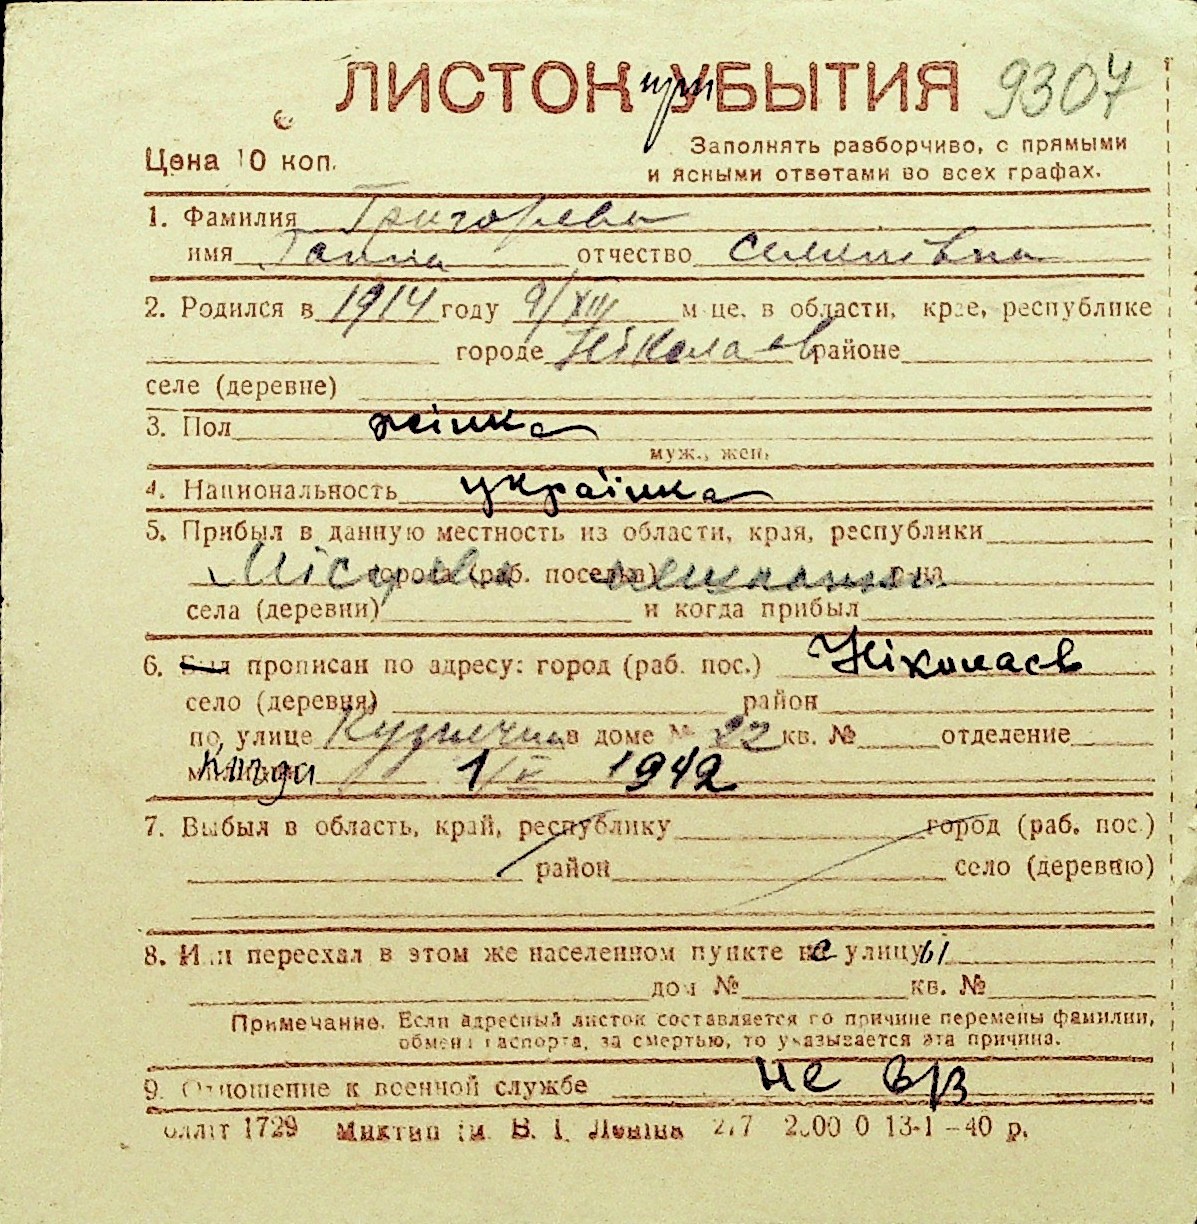 ЛИСТОК при УБЫТИЯ 9307
Цена 10 коп.
Заполнять разборчиво, с прямыми
и ясными ответами во всех графах.
1. Фамилия Григорева
имя Ганна отчество Семенівна
2. Родился в 1914 году 9/XII м-це, в области, крае, республике
городе Ніколаєв районе
селе (деревне)
3. Пол жінка
муж., жен.
4. Национальность українка
5. Прибыл в данную местность из области, края, республики
Місцева города (раб. поселка) мешканка р-на
села (деревни) и когда прибыл
6. Был прописан по адресу: город (раб. пос.) Ніколаєв
село (деревня) район
по улице Кузнечна в доме № 22 кв. № отделение
милиции когда 1/V 1942
7. Выбыл в область, край, республику город (раб. пос.)
район село (деревню)
8. Или переехал в этом же населенном пункте не улицуы
дом № кв. №
Примечание. Если адресный листок составляется по причине перемены фамилии,
обмена паспорта, за смертью, то указывается эта причина.
9. Отношение к военной службе не в/з
1729 ім. В. І. Леніна 2.7 13-1-40 р.